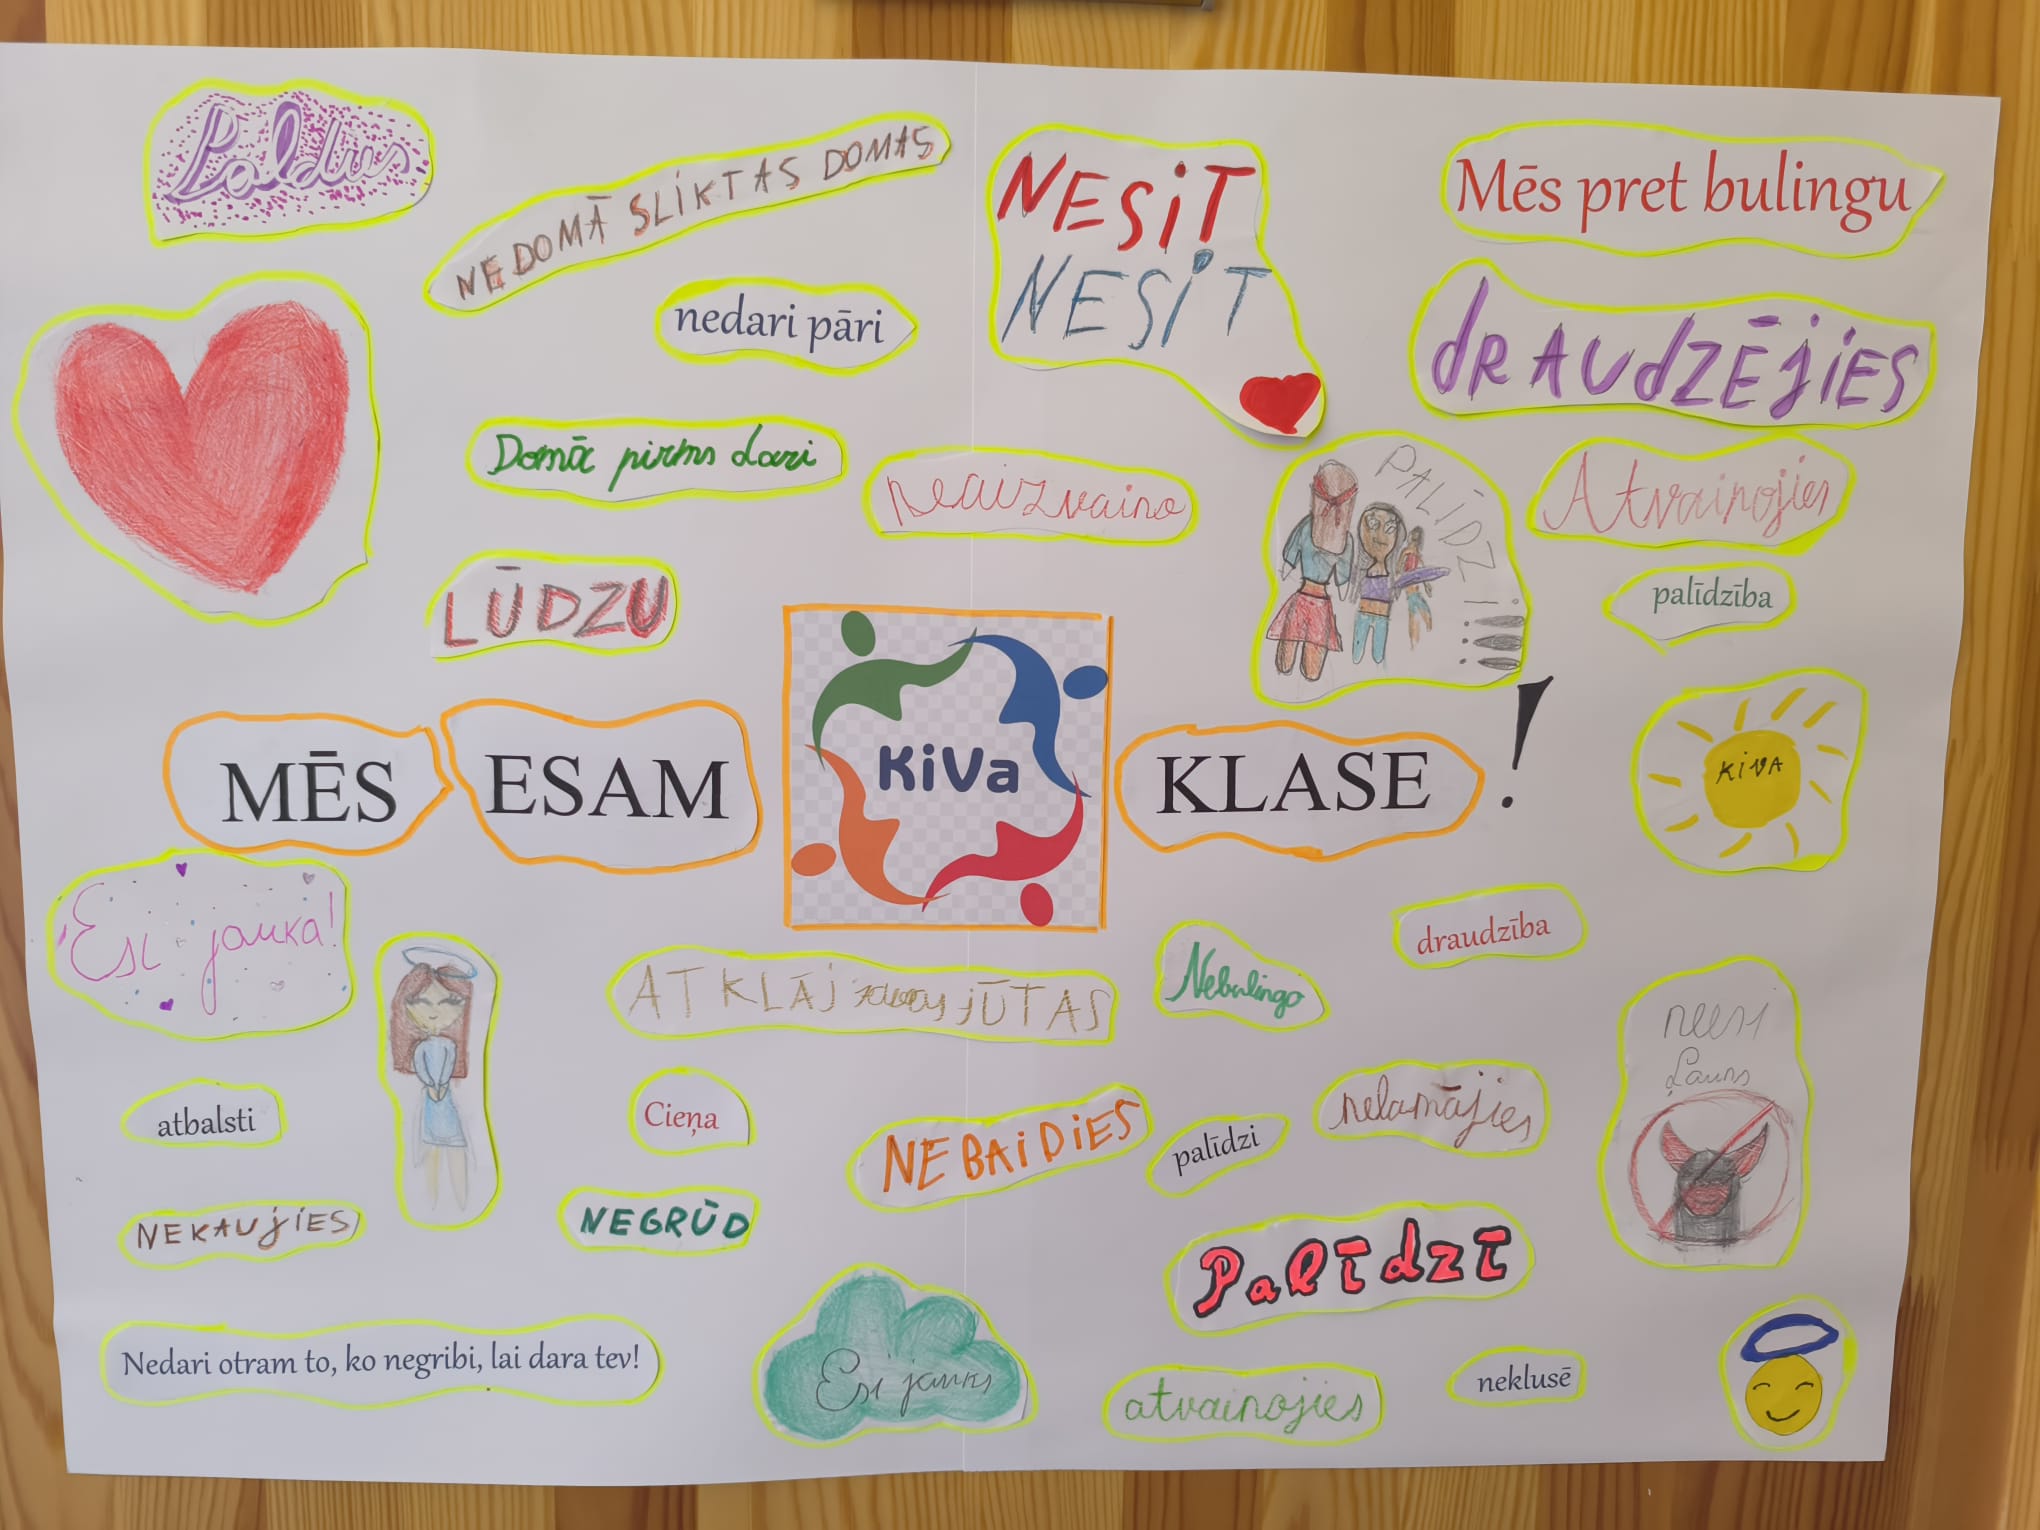 Paldies
NEDOMĀ SLiKTAS DOMAS
NESiT
NESiT
Mēs pret bulingu
nedari pāri
dRAUdZĒjiES
Domā pirms dari
neaizvaino
PALĪDZI!!!!
Atvainojies
palīdzība
LŪDZU
MĒS
ESAM
KiVa
KLASE
!
KiVA
Esi jauka!
ATKLĀJ savas JŪTAS
Nebulingo
draudzība
neesi
Ļauns
atbalsti
Cieņa
NEBAiDiES
palīdzi
nelamājies
NEKAUjiES
NEGRŪD
PalīdzĪ
Nedari otram to, ko negribi, lai dara tev!
Esi jauks
atvainojies
neklusē